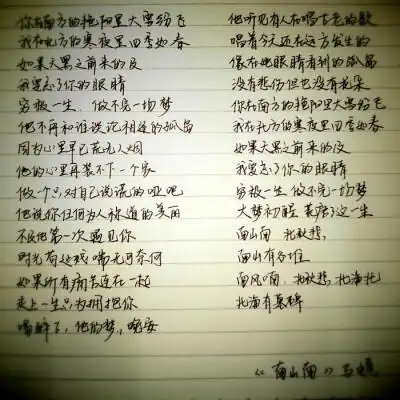 你在南方的艳阳里大雪纷飞
我在北方的寒夜里四季如春
如果天黑之前来的及
我要忘了你的眼睛
穷极一生，做不完一场梦
他不再和谁谈论相逢的孤岛
因为心里早已荒无人烟
他的心里再装不下一个家
做一个只对自己说谎的哑吧
他说你任何为人称道的美丽
不及他第一次遇见你
时光苟延残喘无可奈何
如果所有痛苦连在一起
走上一生只为拥抱你
喝醉了，他的梦，晚安
他听见有人在唱古老的歌
唱着今天还在远方发生的
像在她眼睛看到的孤岛
没有悲伤但也没有花朵
你在南方的艳阳里大雪纷飞
我在北方的寒夜里四季如春
如果天黑之前来的及
我要忘了你的眼睛
穷极一生 做不完一场梦
大梦初醒 荒唐了这一生
南山南 北秋悲，
南山有谷堆
南风喃，北秋悲，北海北
北海有墓碑
《南山南》马頔